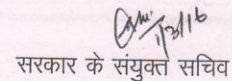 1/3/16
सरकार के संयुक्त सचिव